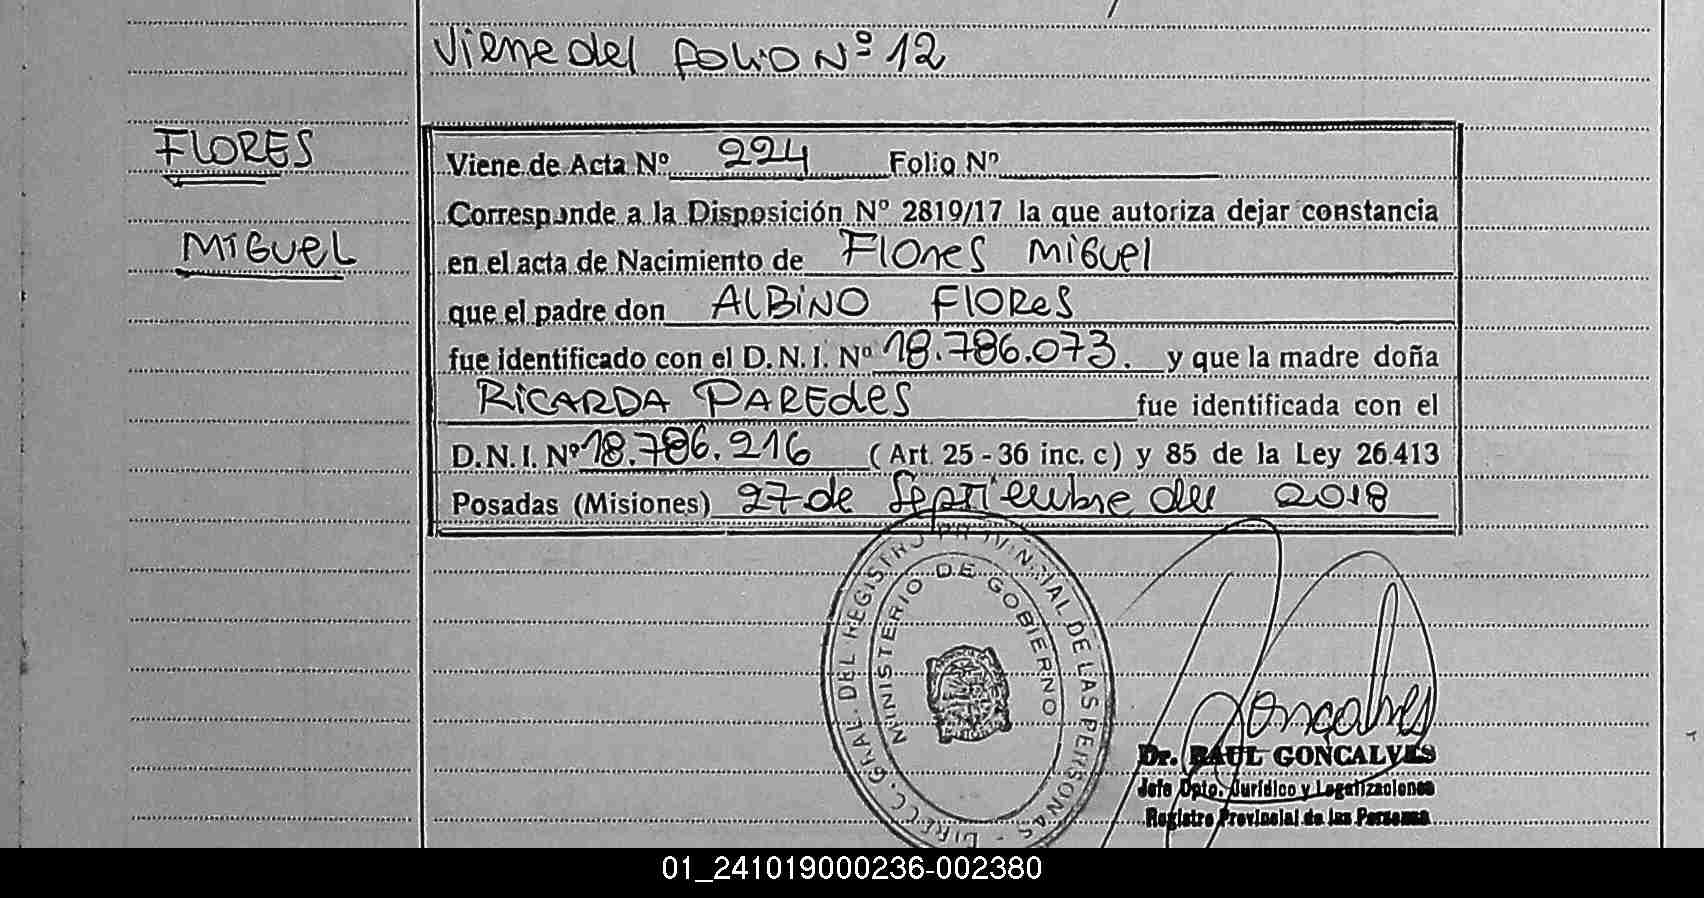 Viene del FOLIO Nº 12
FLORES
MIGUEL
Viene de Acta Nº 224 Folio Nº
Corresponde a la Disposición Nº 2819/17 la que autoriza dejar constancia
en el acta de Nacimiento de Flores Miguel
que el padre don ALBINO FLOReS
fue identificado con el D.N.I. Nº 18.786.073. y que la madre doña
RICARDA PAREdeS fue identificada con el
D.N.I. Nº 18.786.216 (Art. 25 - 36 inc. c) y 85 de la Ley 26.413
Posadas (Misiones) 27 de Septiembre del 2018
DIREC. GRAL. DEL REGISTRO PROVINCIAL DE LAS PERSONAS -
MINISTERIO DE GOBIERNO
Goncalves
Dr. RAUL GONCALVES
Jefe Dpto. Jurídico y Legalizaciones
Registro Provincial de las Personas
01_241019000236-002380